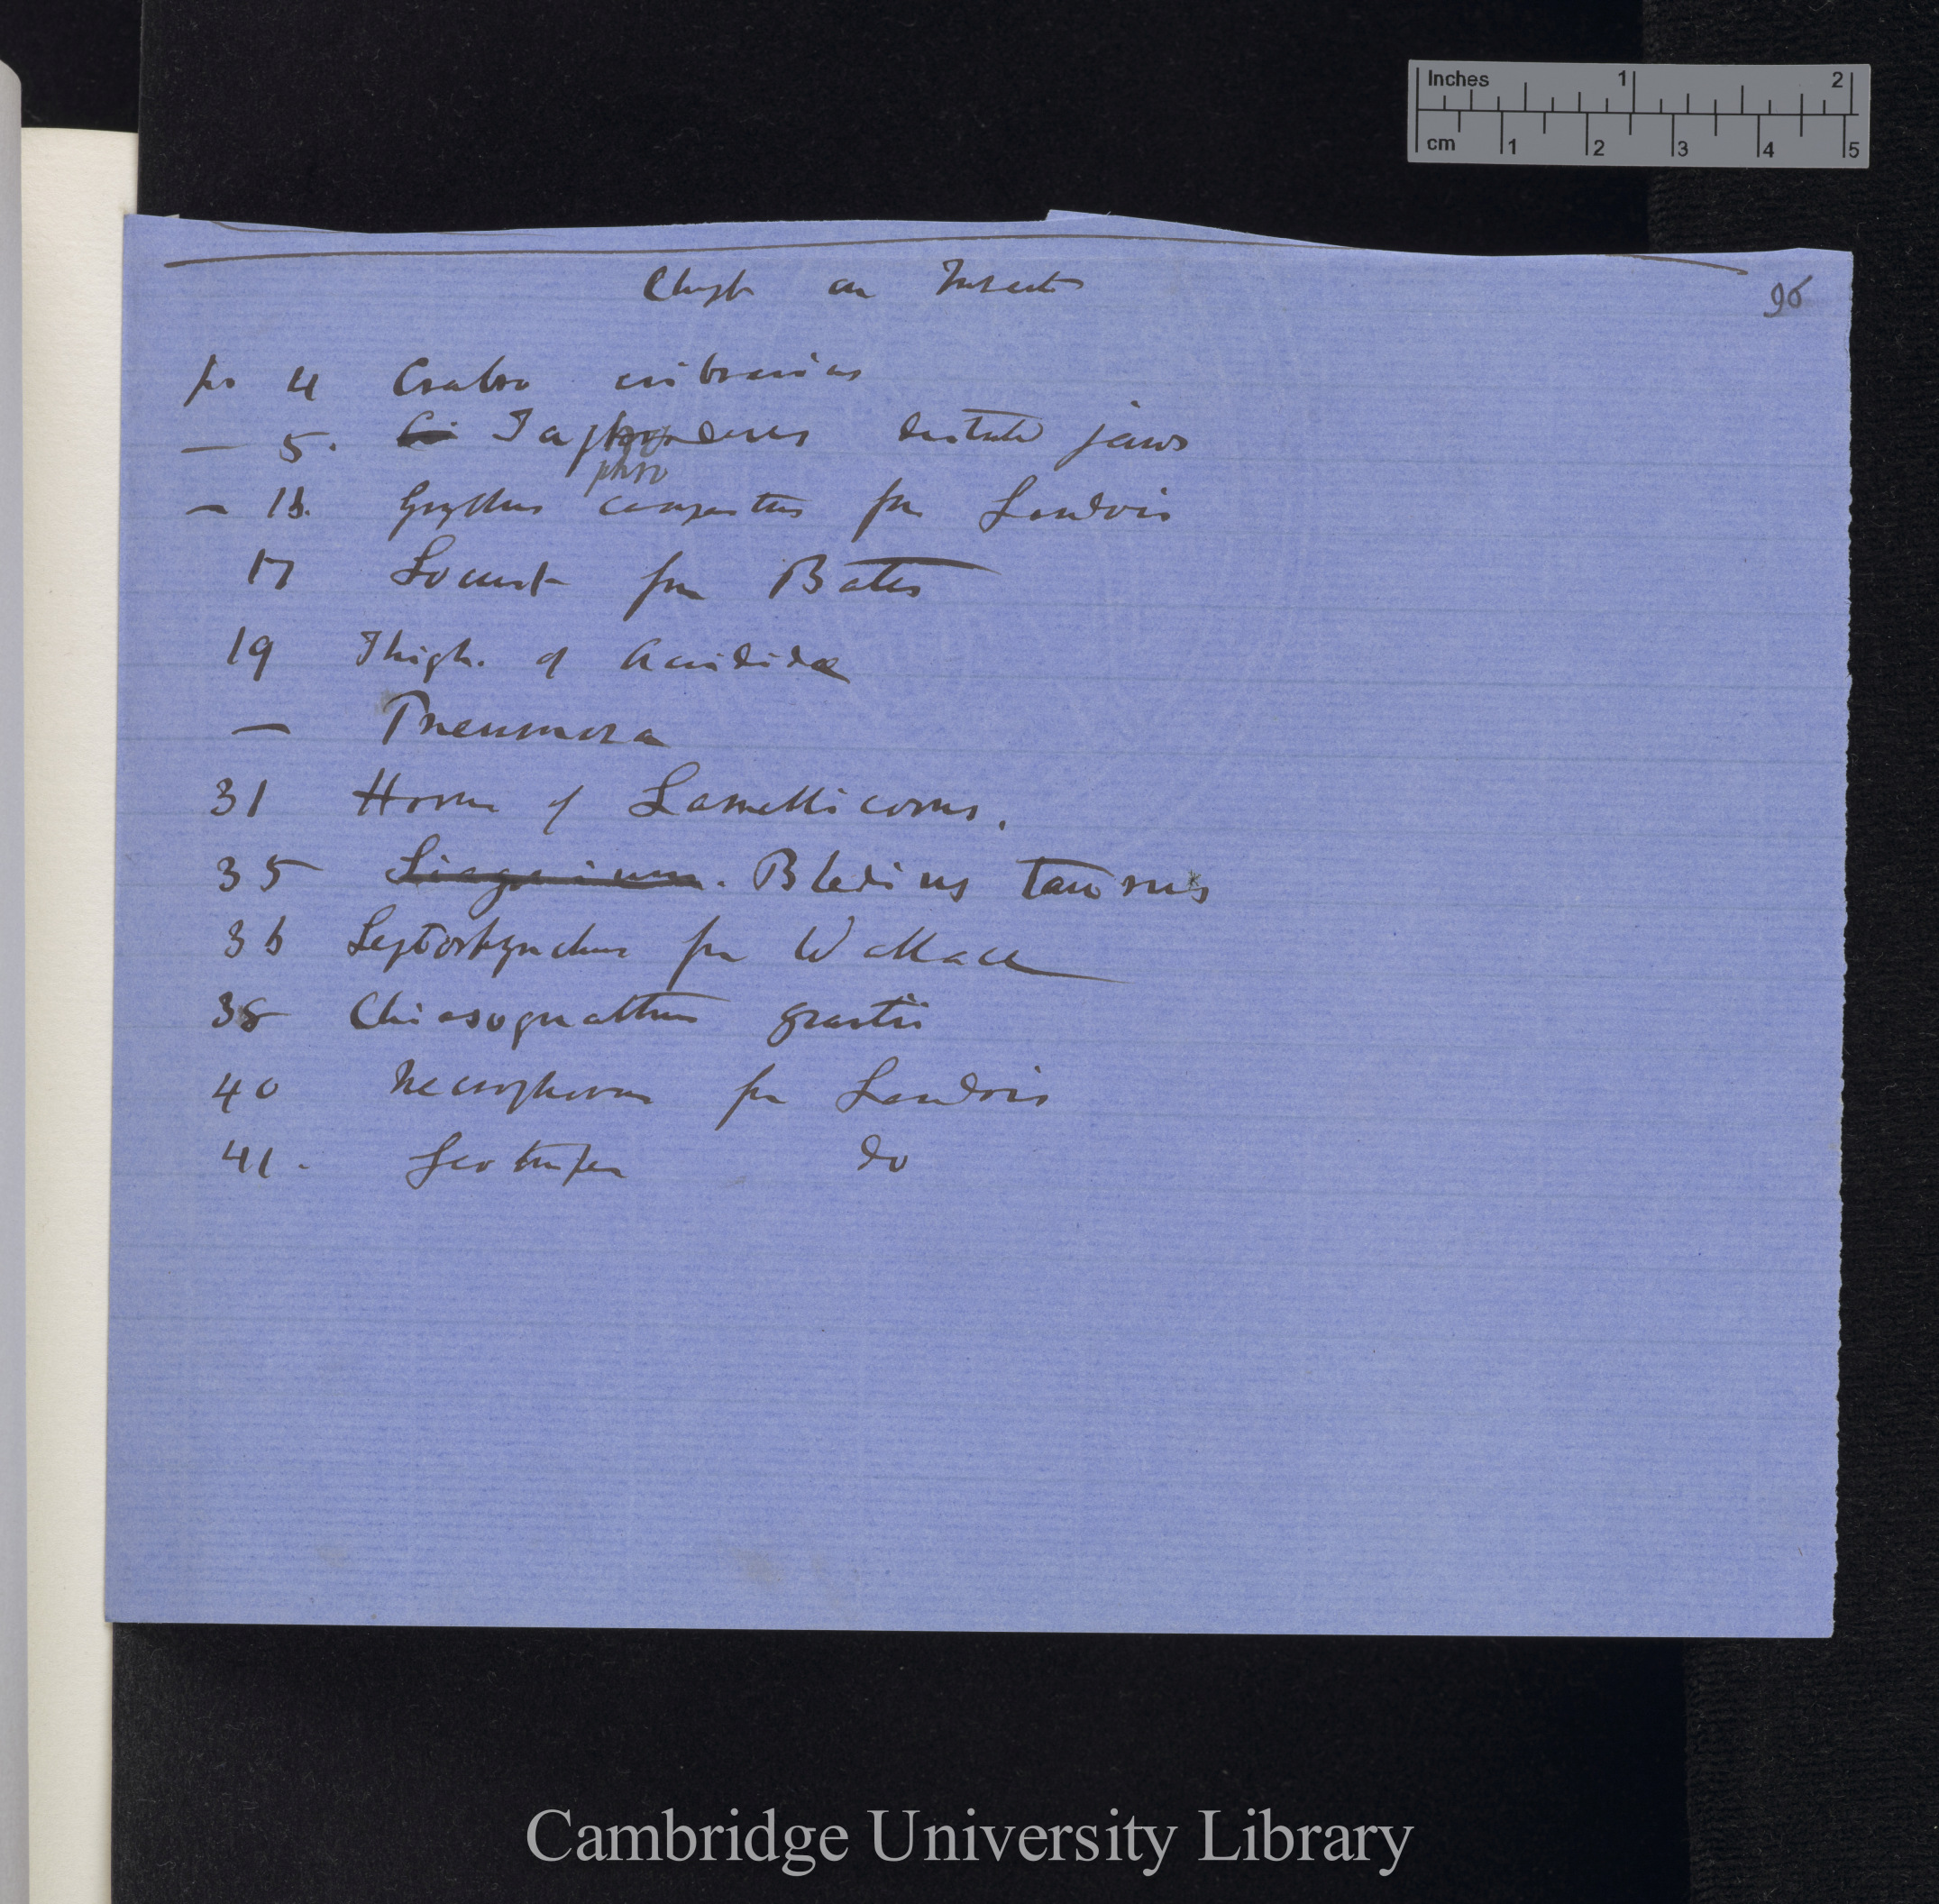 Inches 1 2
cm 1 2 3 4 5
Chapt on Insects
96
p. 4 Crabro cribrarius
— 5. Taphroderes distorted jaws
phro
— 13. Gryllus campestris from Landois
17 Locust from Bates
19 Thigh. of Acrididæ
— Pneumora
31 Horns of Lamellicorns.
35 Siagonium. Bledius taurus
36 Leptorhynchus from Wallace
38 Chiasognathus grantii
40 Necrophorus from Landois
41. Geotrupes do
Cambridge University Library